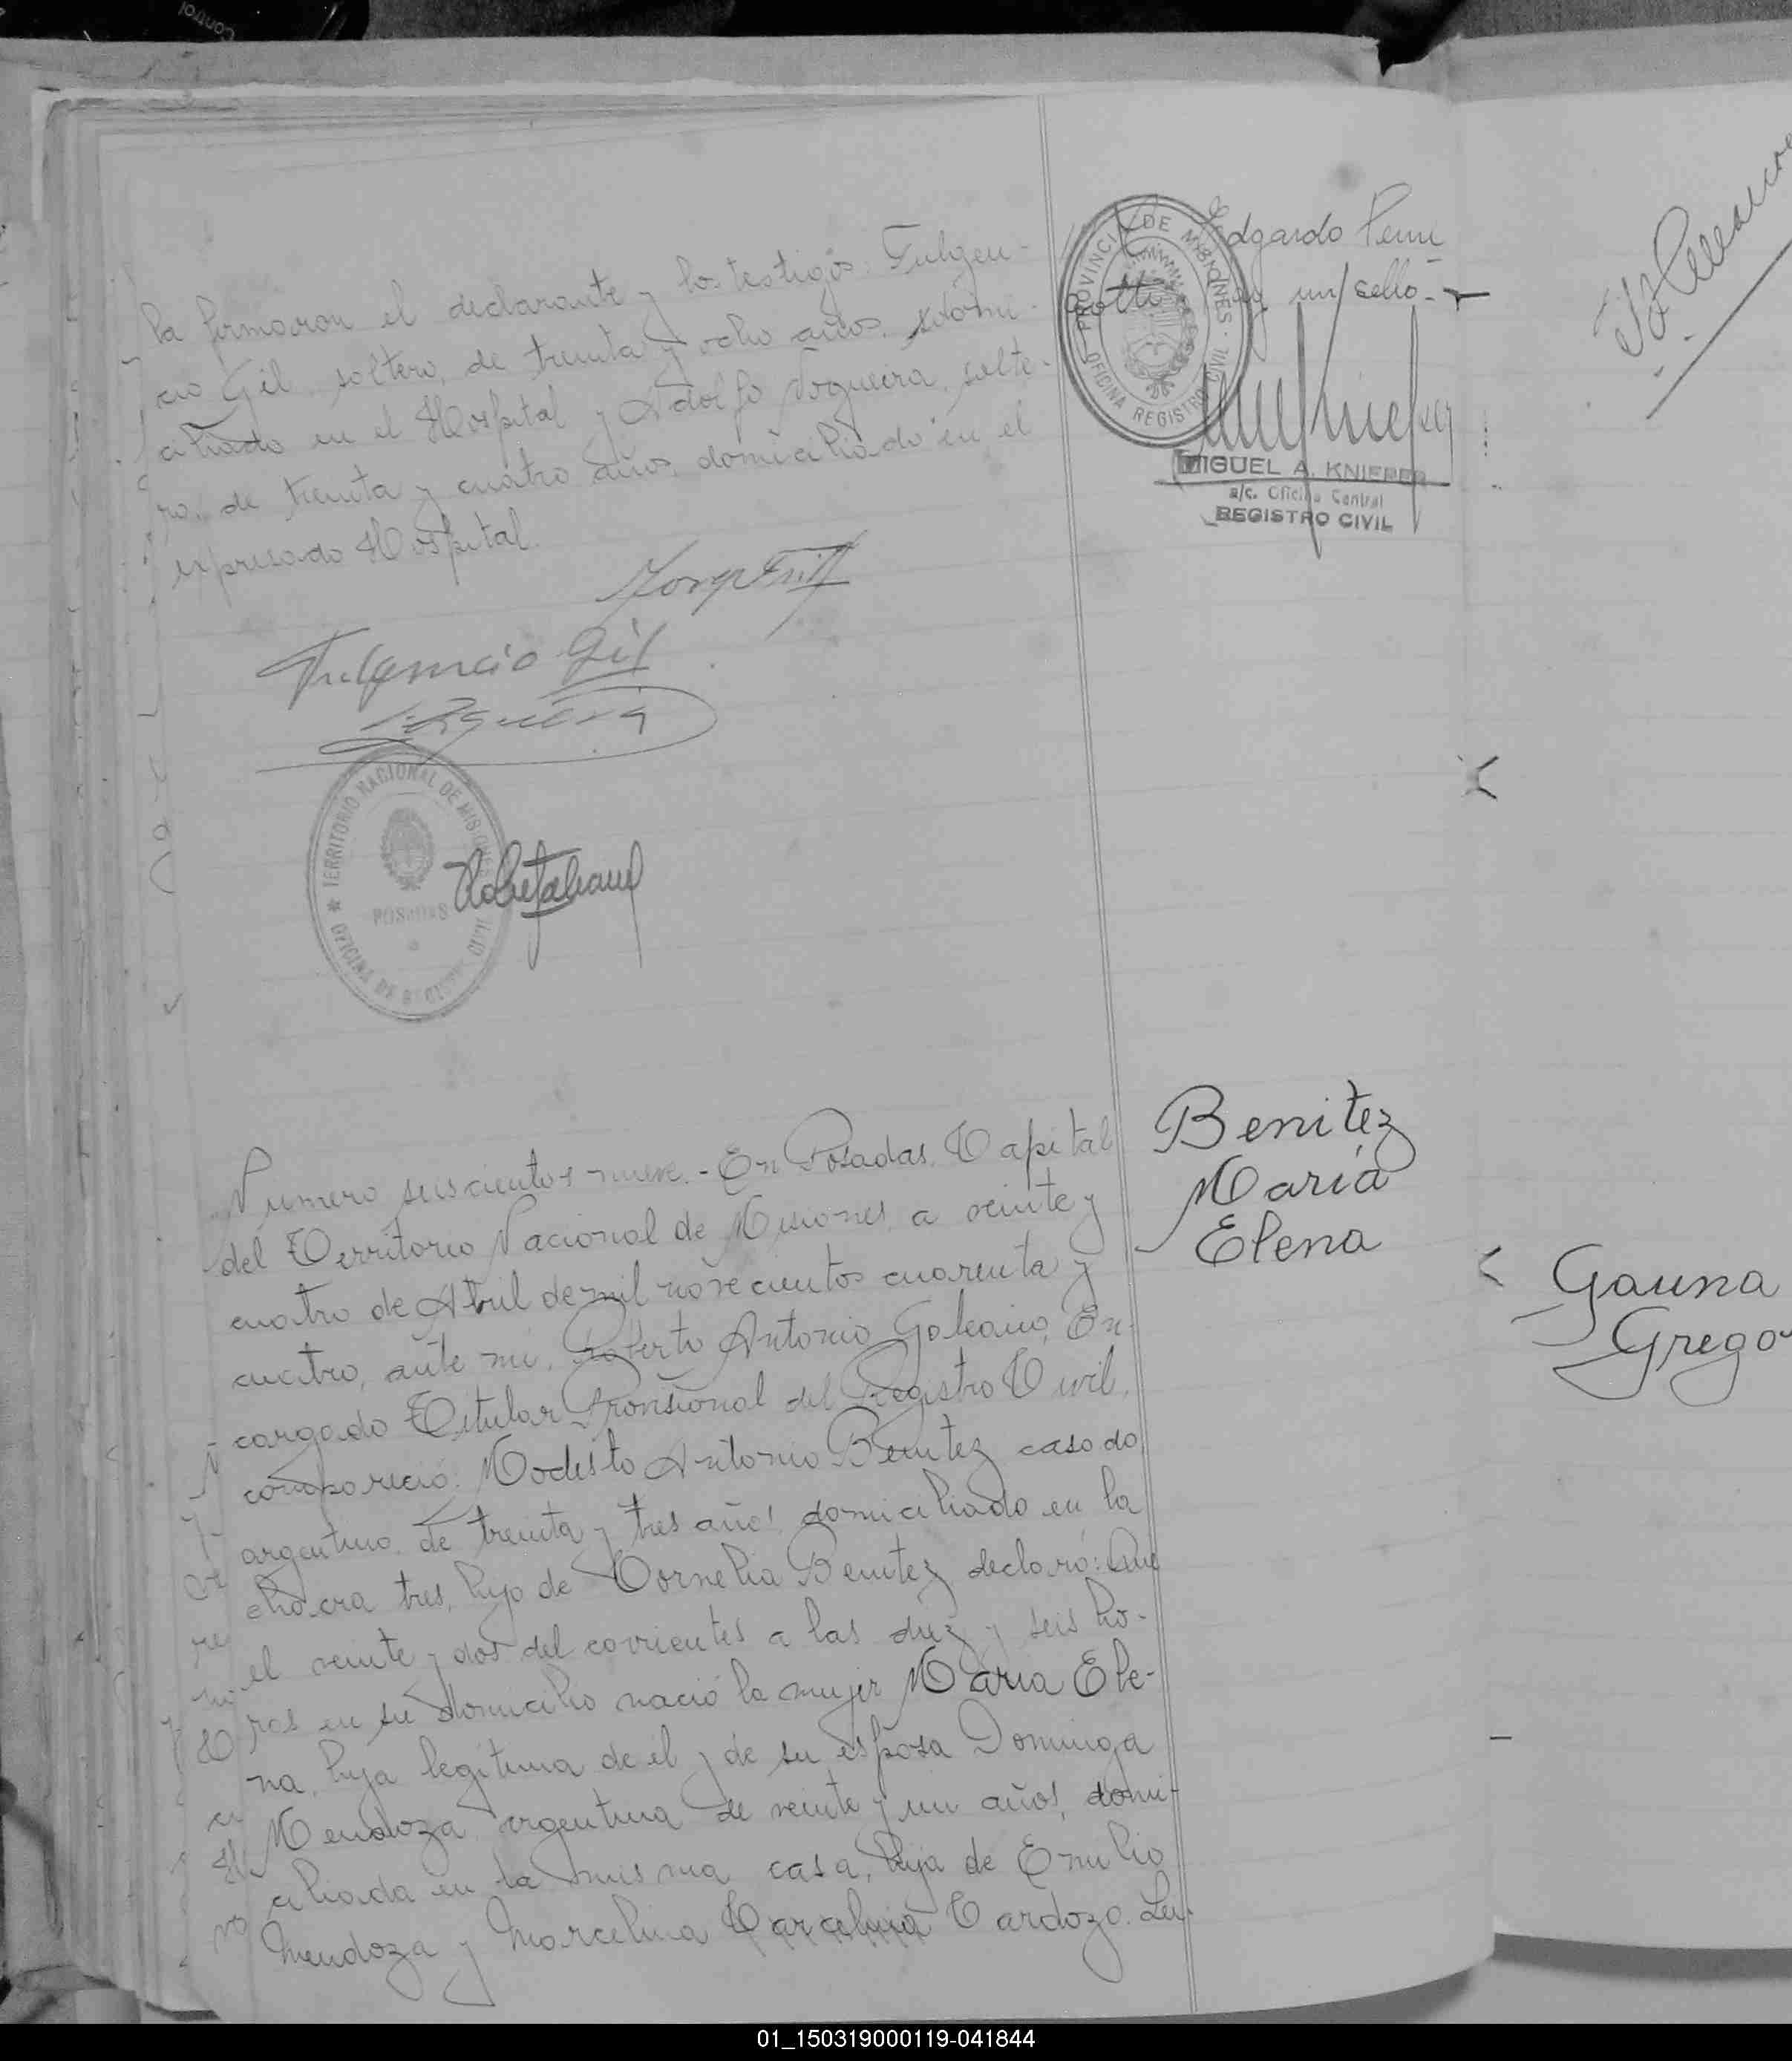 la firmaron el declarante y los testigos: Fulgen-
cio Gil, soltero, de treinta y ocho años, domi-
ciliado en el Hospital y Adolfo Nogueira, solte-
ro, de treinta y cuatro años, domiciliado en el
expresado Hospital.
Fulgencio Gil
TERRITORIO NACIONAL DE MISIONES
POSADAS
OFICINA DE REGISTRO CIVIL
Edgardo
hay un sello.-
PROVINCIA DE MISIONES
OFICINA REGISTRO CIVIL
MIGUEL A. KNIEPER
a/c. Oficina Central
REGISTRO CIVIL
Benitez
María
Elena
Numero seiscientos nueve.- En Posadas, Capital
del Territorio Nacional de Misiones, a veinte y
cuatro de Abril de mil novecientos cuarenta y
cuatro, ante mi, Roberto Antonio Galeano, En-
cargado Titular Provisional del Registro Civil,
compareció: Modesto Antonio Benitez casado
argentino de treinta y tres años domiciliado en la
chacra tres, hijo de Cornelia Benitez declaró: Que
el veinte y dos del corrientes a las diez y seis ho-
ras en su domicilio nació la mujer Maria Ele-
na, hija legítima de él y de su esposa Dominga
Mendoza argentina de veinte y un años, domi-
ciliada en la misma casa, hija de Emilio
Mendoza y Marcelina Carcelina Cardozo. Leí-
Gauna
Grego
01_150319000119-041844